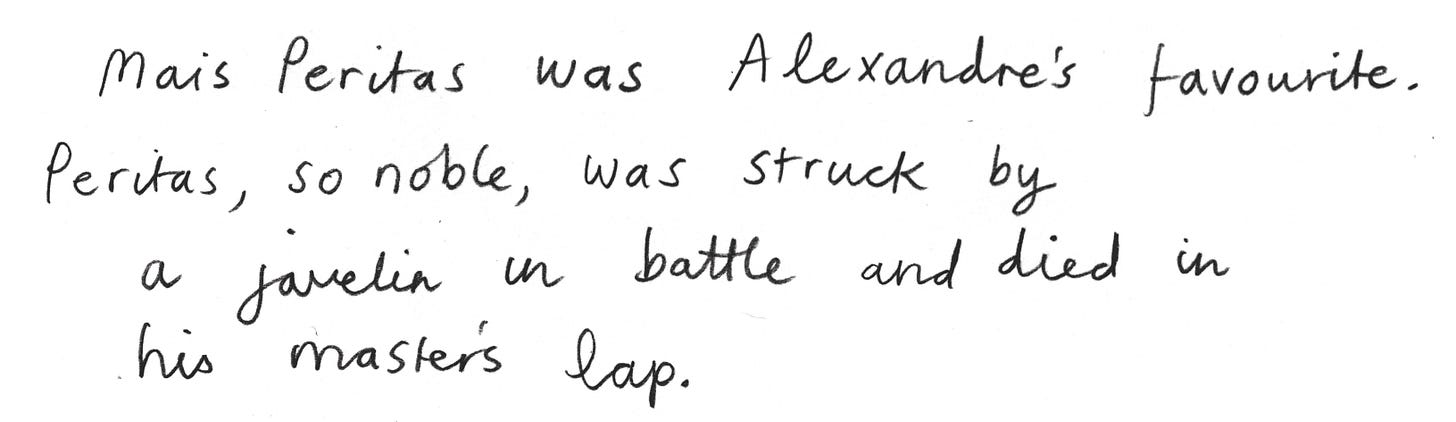 Mais Peritas was Alexandre's favourite.
Peritas, so noble, was struck by
a javelin in battle and died in
his master's lap.